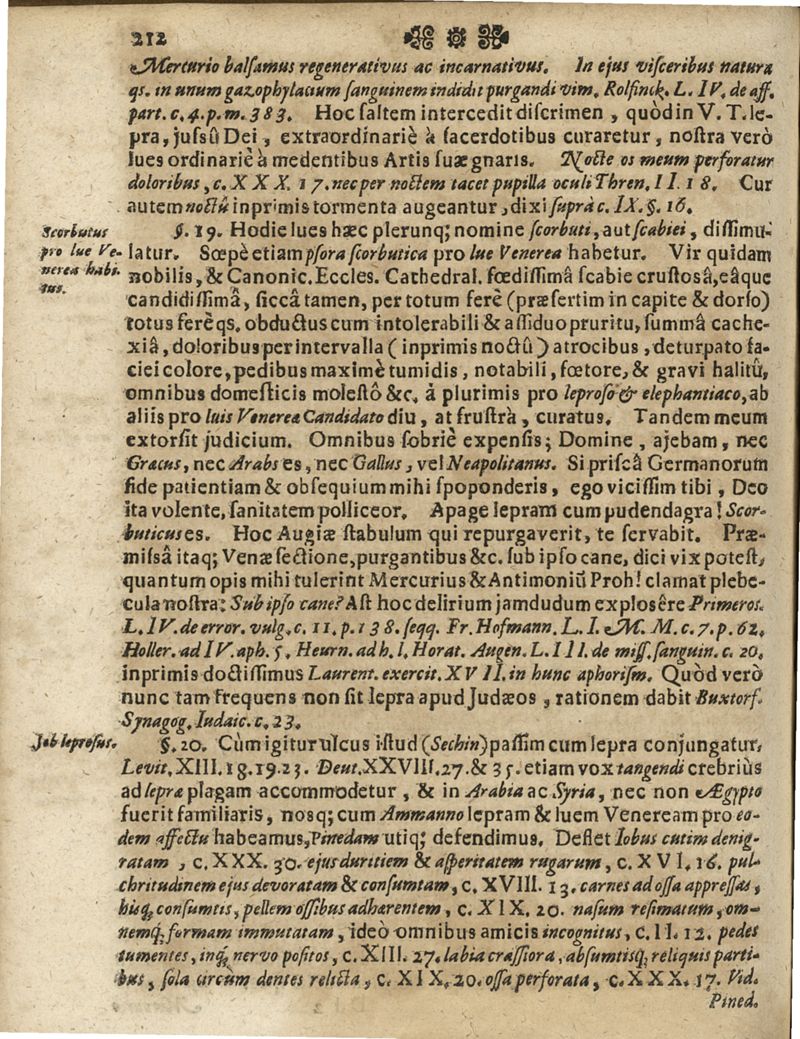 212
Mercurio balsamus regenerativus ac incarnativus. In ejus visceribus natura
qs. in unum gazophylacium sanguinem indidit purgandi vim. Rolfinck. L. IV. de aff.
part. c. 4. p. m. 383. Hoc saltem intercedit discrimen, quòd in V. T. le-
pra, jussû Dei, extraordinariè à sacerdotibus curaretur, nostra verò
lues ordinariè à medentibus Artis suæ gnaris. Nocte os meum perforatur
doloribus, c. XXX. 17. nec per noctem tacet pupilla oculi Thren. II. 18. Cur
autem noctû inprimis tormenta augeantur, dixi suprà c. IX. §. 16.
Scorbutus
pro lue Ve-
nerea habi-
tus.
§. 19. Hodie lues hæc plerunq; nomine scorbuti, aut scabiei, dissimu-
latur. Sœpè etiam psora scorbutica pro lue Venerea habetur. Vir quidam
nobilis, & Canonic. Eccles. Cathedral. fœdissimâ scabie crustosâ, eâque
candidissimâ, siccâ tamen, per totum ferè (præsertim in capite & dorso)
totus ferè qs. obductus cum intolerabili & assiduo pruritu, summâ cache-
xiâ, doloribus per intervalla (inprimis noctû) atrocibus, deturpato fa-
ciei colore, pedibus maximè tumidis, notabili, fœtore, & gravi halitû,
omnibus domesticis molestô &c. â plurimis pro leproso & elephantiaco, ab
aliis pro luis Venereæ Candidato diu, at frustrà, curatus. Tandem meum
extorsit judicium. Omnibus sobriè expensis; Domine, ajebam, nec
Græcus, nec Arabs es, nec Gallus, vel Neapolitanus. Si priscâ Germanorum
fide patientiam & obsequium mihi spoponderis, ego vicissim tibi, Deo
ita volente, sanitatem polliceor. Apage lepram cum pudendagra! Scor-
buticus es. Hoc Augiæ stabulum qui repurgaverit, te servabit. Præ-
missâ itaq; Venæ sectione, purgantibus &c. sub ipso cane, dici vix potest,
quantum opis mihi tulerint Mercurius & Antimoniū Proh! clamat plebe-
cula nostra: Sub ipso cane? Ast hoc delirium jamdudum explosêre Primeros.
L. IV. de error. vulg. c. 11. p. 138. seqq. Fr. Hofmann. L. I. M. M. c. 7. p. 62.
Holler. ad IV. aph. 5. Heurn. ad h. l. Horat. Augen. L. III. de miss. sanguin. c. 20.
inprimis doctissimus Laurent. exercit. XVII. in hunc aphorism. Quòd verò
nunc tam frequens non sit lepra apud Judæos, rationem dabit Buxtorf.
Synagog. Iudaic. c. 23.
Job leprosus.
§. 20. Cùm igitur ulcus istud (Sechin) passim cum lepra conjungatur,
Levit. XIII. 18. 19. 23. Deut. XXVIII. 27. & 35. etiam vox tangendi crebriùs
ad lepræ plagam accommodetur, & in Arabia ac Syria, nec non Ægypto
fuerit familiaris, nosq; cum Ammanno lepram & luem Veneream pro eo-
dem affectu habeamus, Pinedam utiq; defendimus. Deflet Iobus cutim denig-
ratam, c. XXX. 30. ejus duritiem & asperitatem rugarum, c. XVI. 16. pul-
chritudinem ejus devoratam & consumtam, c. XVIII. 13. carnes ad ossa appressas,
hisq; consumtis, pellem ossibus adhærentem, c. XIX. 20. nasum resimatum, om-
nemq; formam immutatam, ideò omnibus amicis incognitus, c. II. 12. pedes
tumentes, inq; nervo positos, c. XIII. 27. labia crassiora, absumtisq; reliquis parti-
bus, sola circùm dentes relicta, c. XIX. 20. ossa perforata, c. XXX. 17. Vid.
Pined.